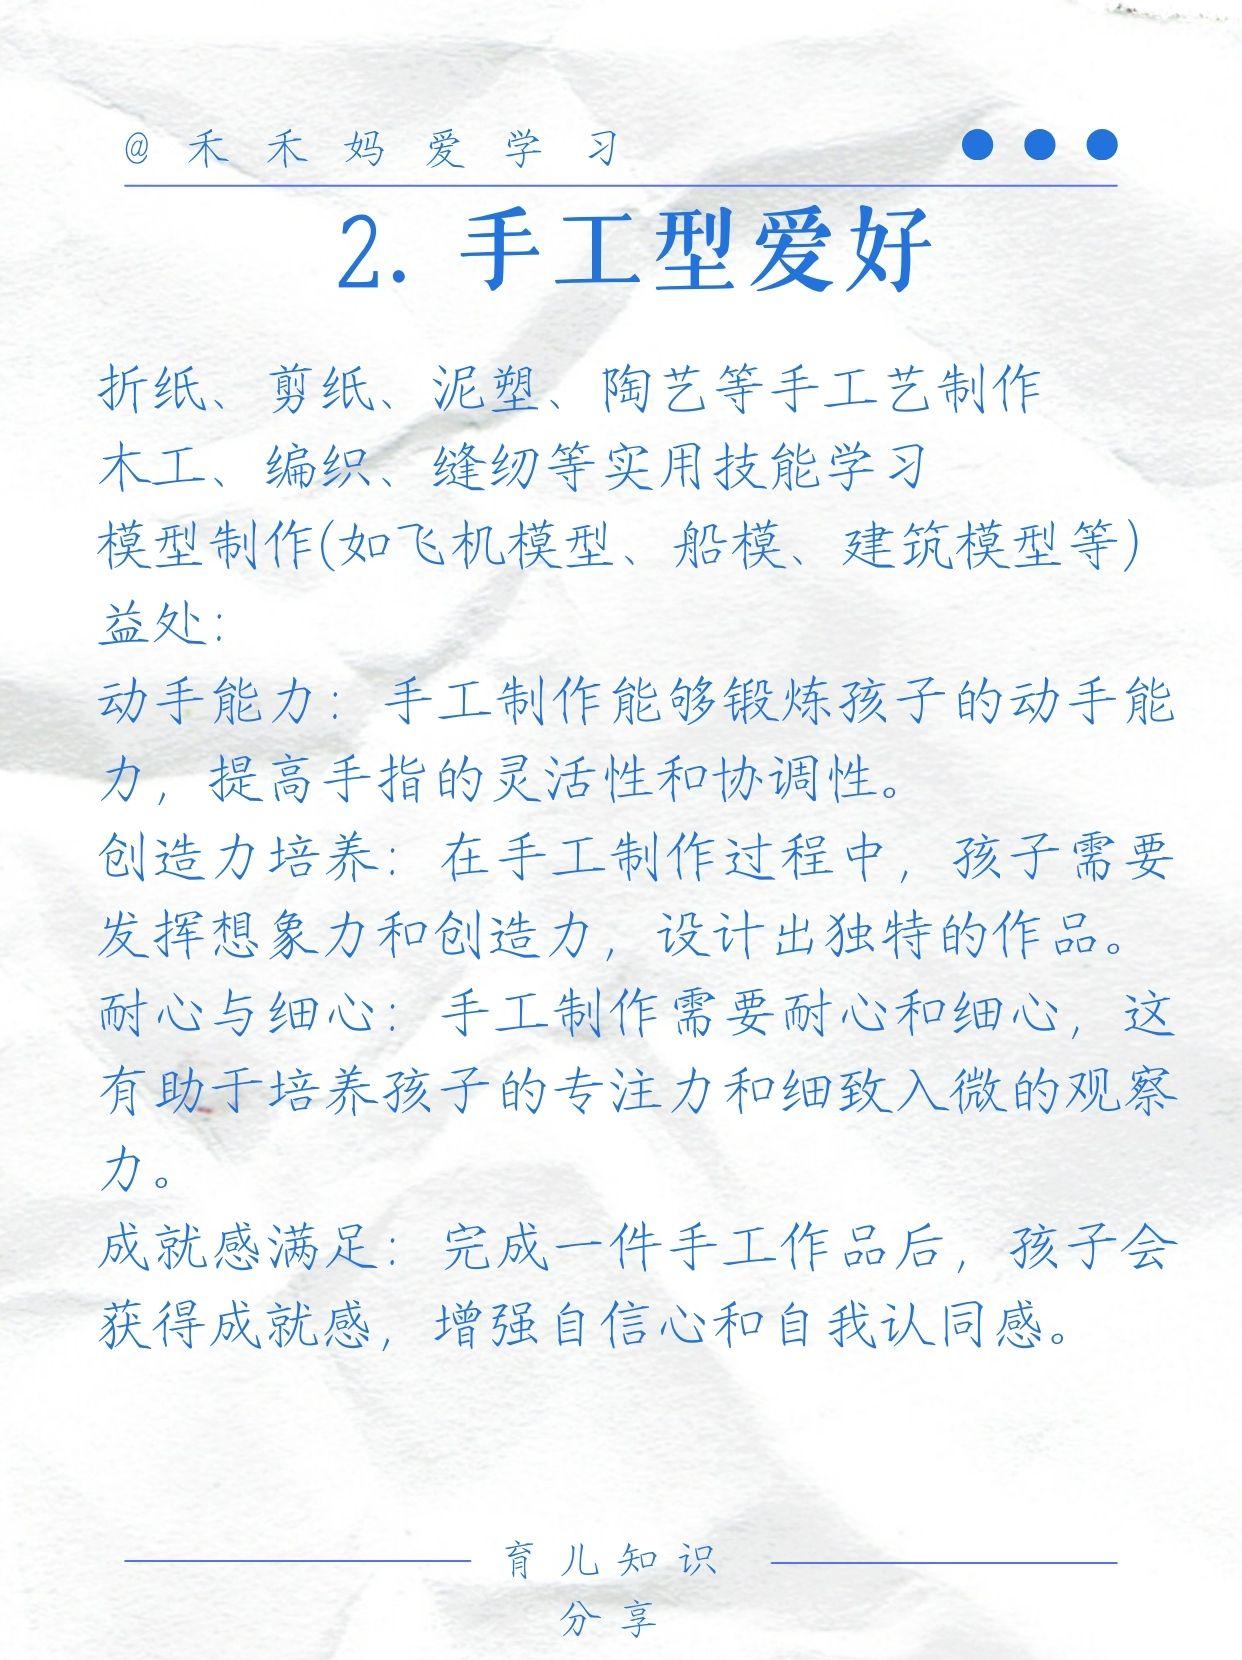 @禾禾妈爱学习
2. 手工型爱好
折纸、剪纸、泥塑、陶艺等手工艺制作
木工、编织、缝纫等实用技能学习
模型制作(如飞机模型、船模、建筑模型等)
益处:
动手能力: 手工制作能够锻炼孩子的动手能
力，提高手指的灵活性和协调性。
创造力培养: 在手工制作过程中，孩子需要
发挥想象力和创造力，设计出独特的作品。
耐心与细心: 手工制作需要耐心和细心，这
有助于培养孩子的专注力和细致入微的观察
力。
成就感满足: 完成一件手工作品后，孩子会
获得成就感，增强自信心和自我认同感。
育儿知识
分享